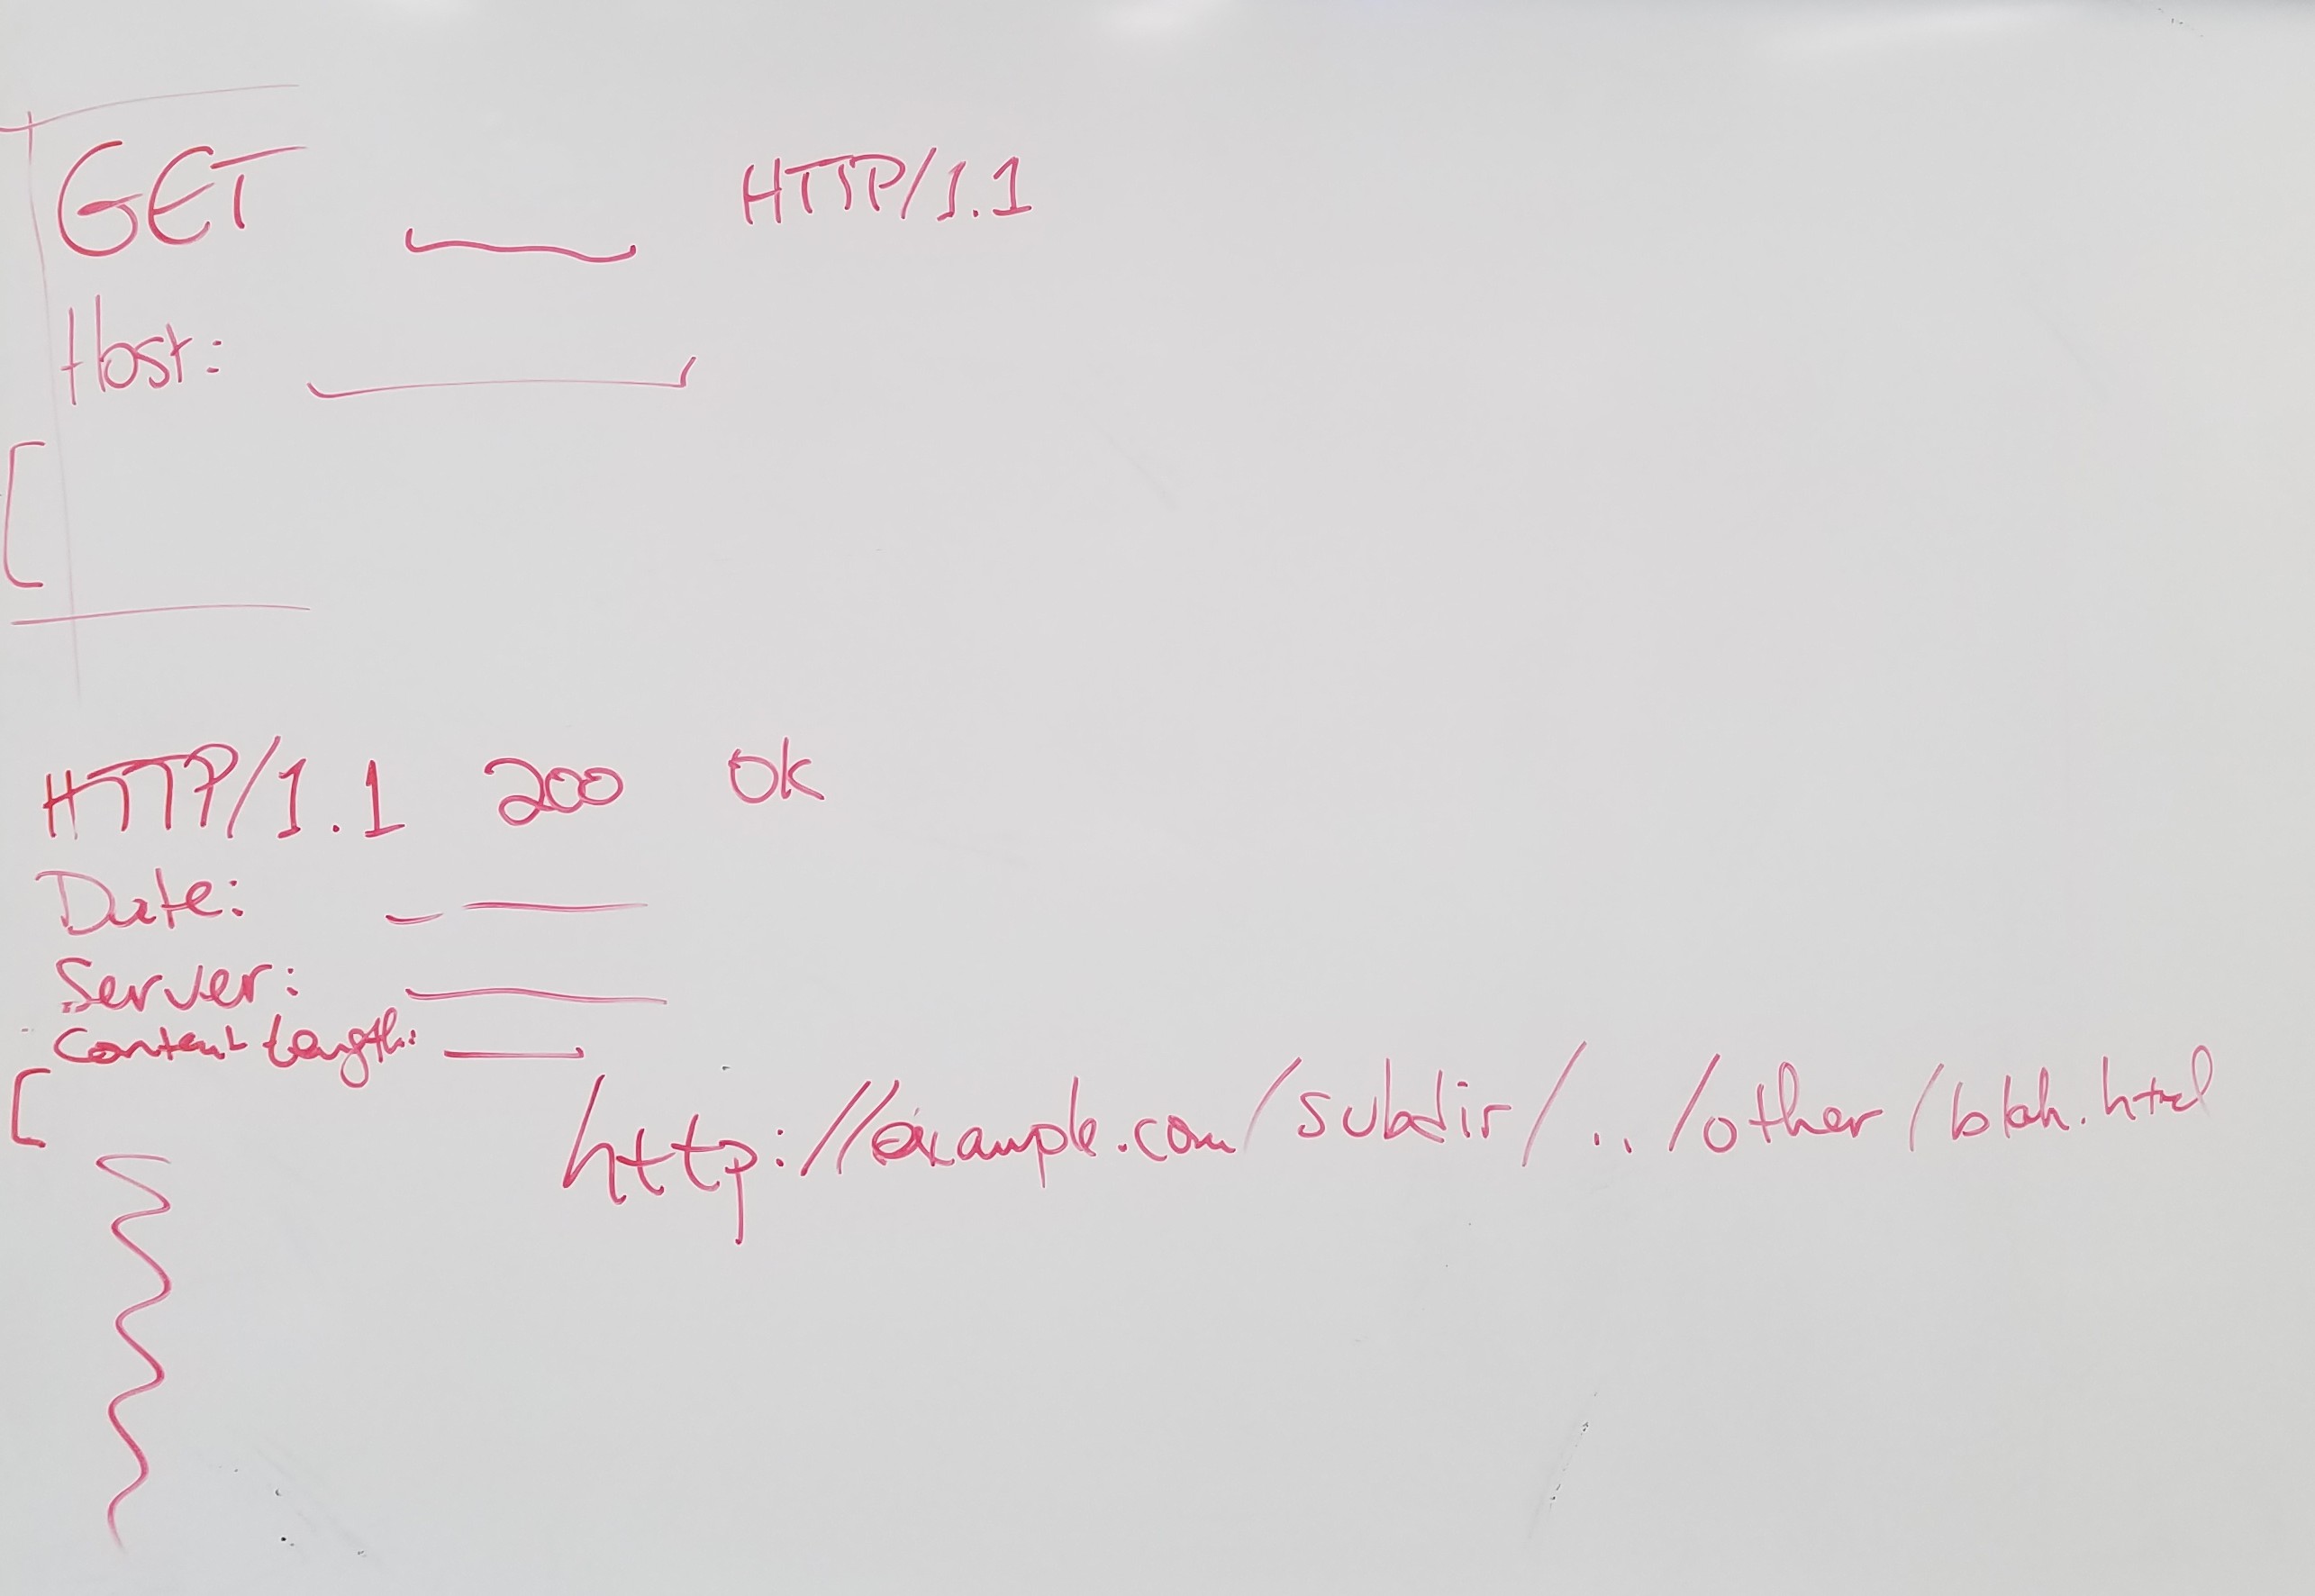 GET HTTP/1.1
Host:
HTTP/1.1 200 OK
Date:
Server:
Content Length:
http://example.com/subdir/../other/blah.html